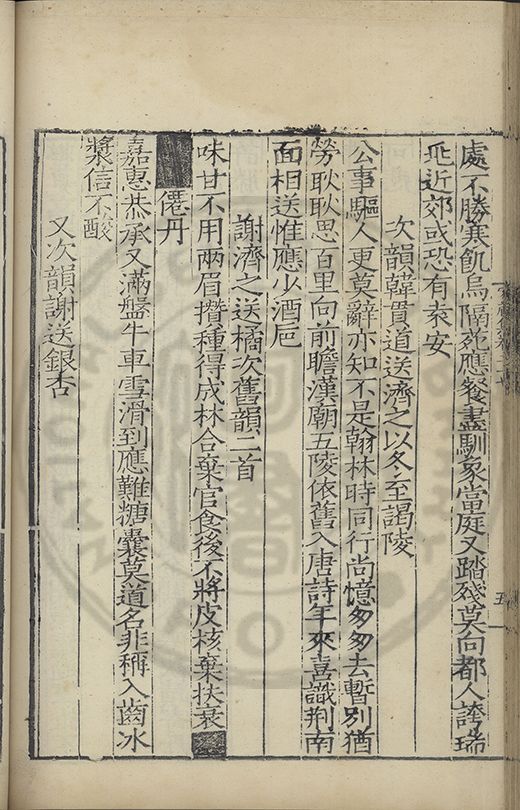 處不勝寒飢烏隔死應餐盡馴象當庭又踏殘莫向都人誇瑞
延近郊或恐有袁安
次韻韓貫道送濟之以冬至謁陵
公事驅人更莫辭亦知不是翰林時同行尚憶匆匆去暫別猶
勞耿耿思百里向前瞻漢廟五陵依舊入唐詩年來喜識荆南
面相送惟應少酒巵
謝濟之送橘次舊韻二首
味甘不用兩眉攢種得成林合棄官食後不將皮核棄扶衰
僊丹
嘉惠恭承又滿盤牛車雪滑到應難糖囊莫道名非稱入齒冰
漿信不酸
又次韻謝送銀杏
五